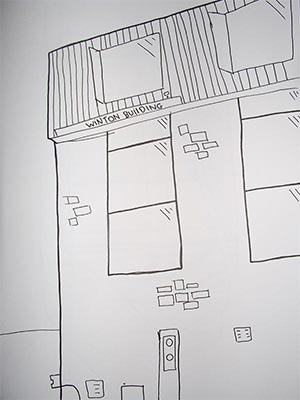 WINTON BUILDING